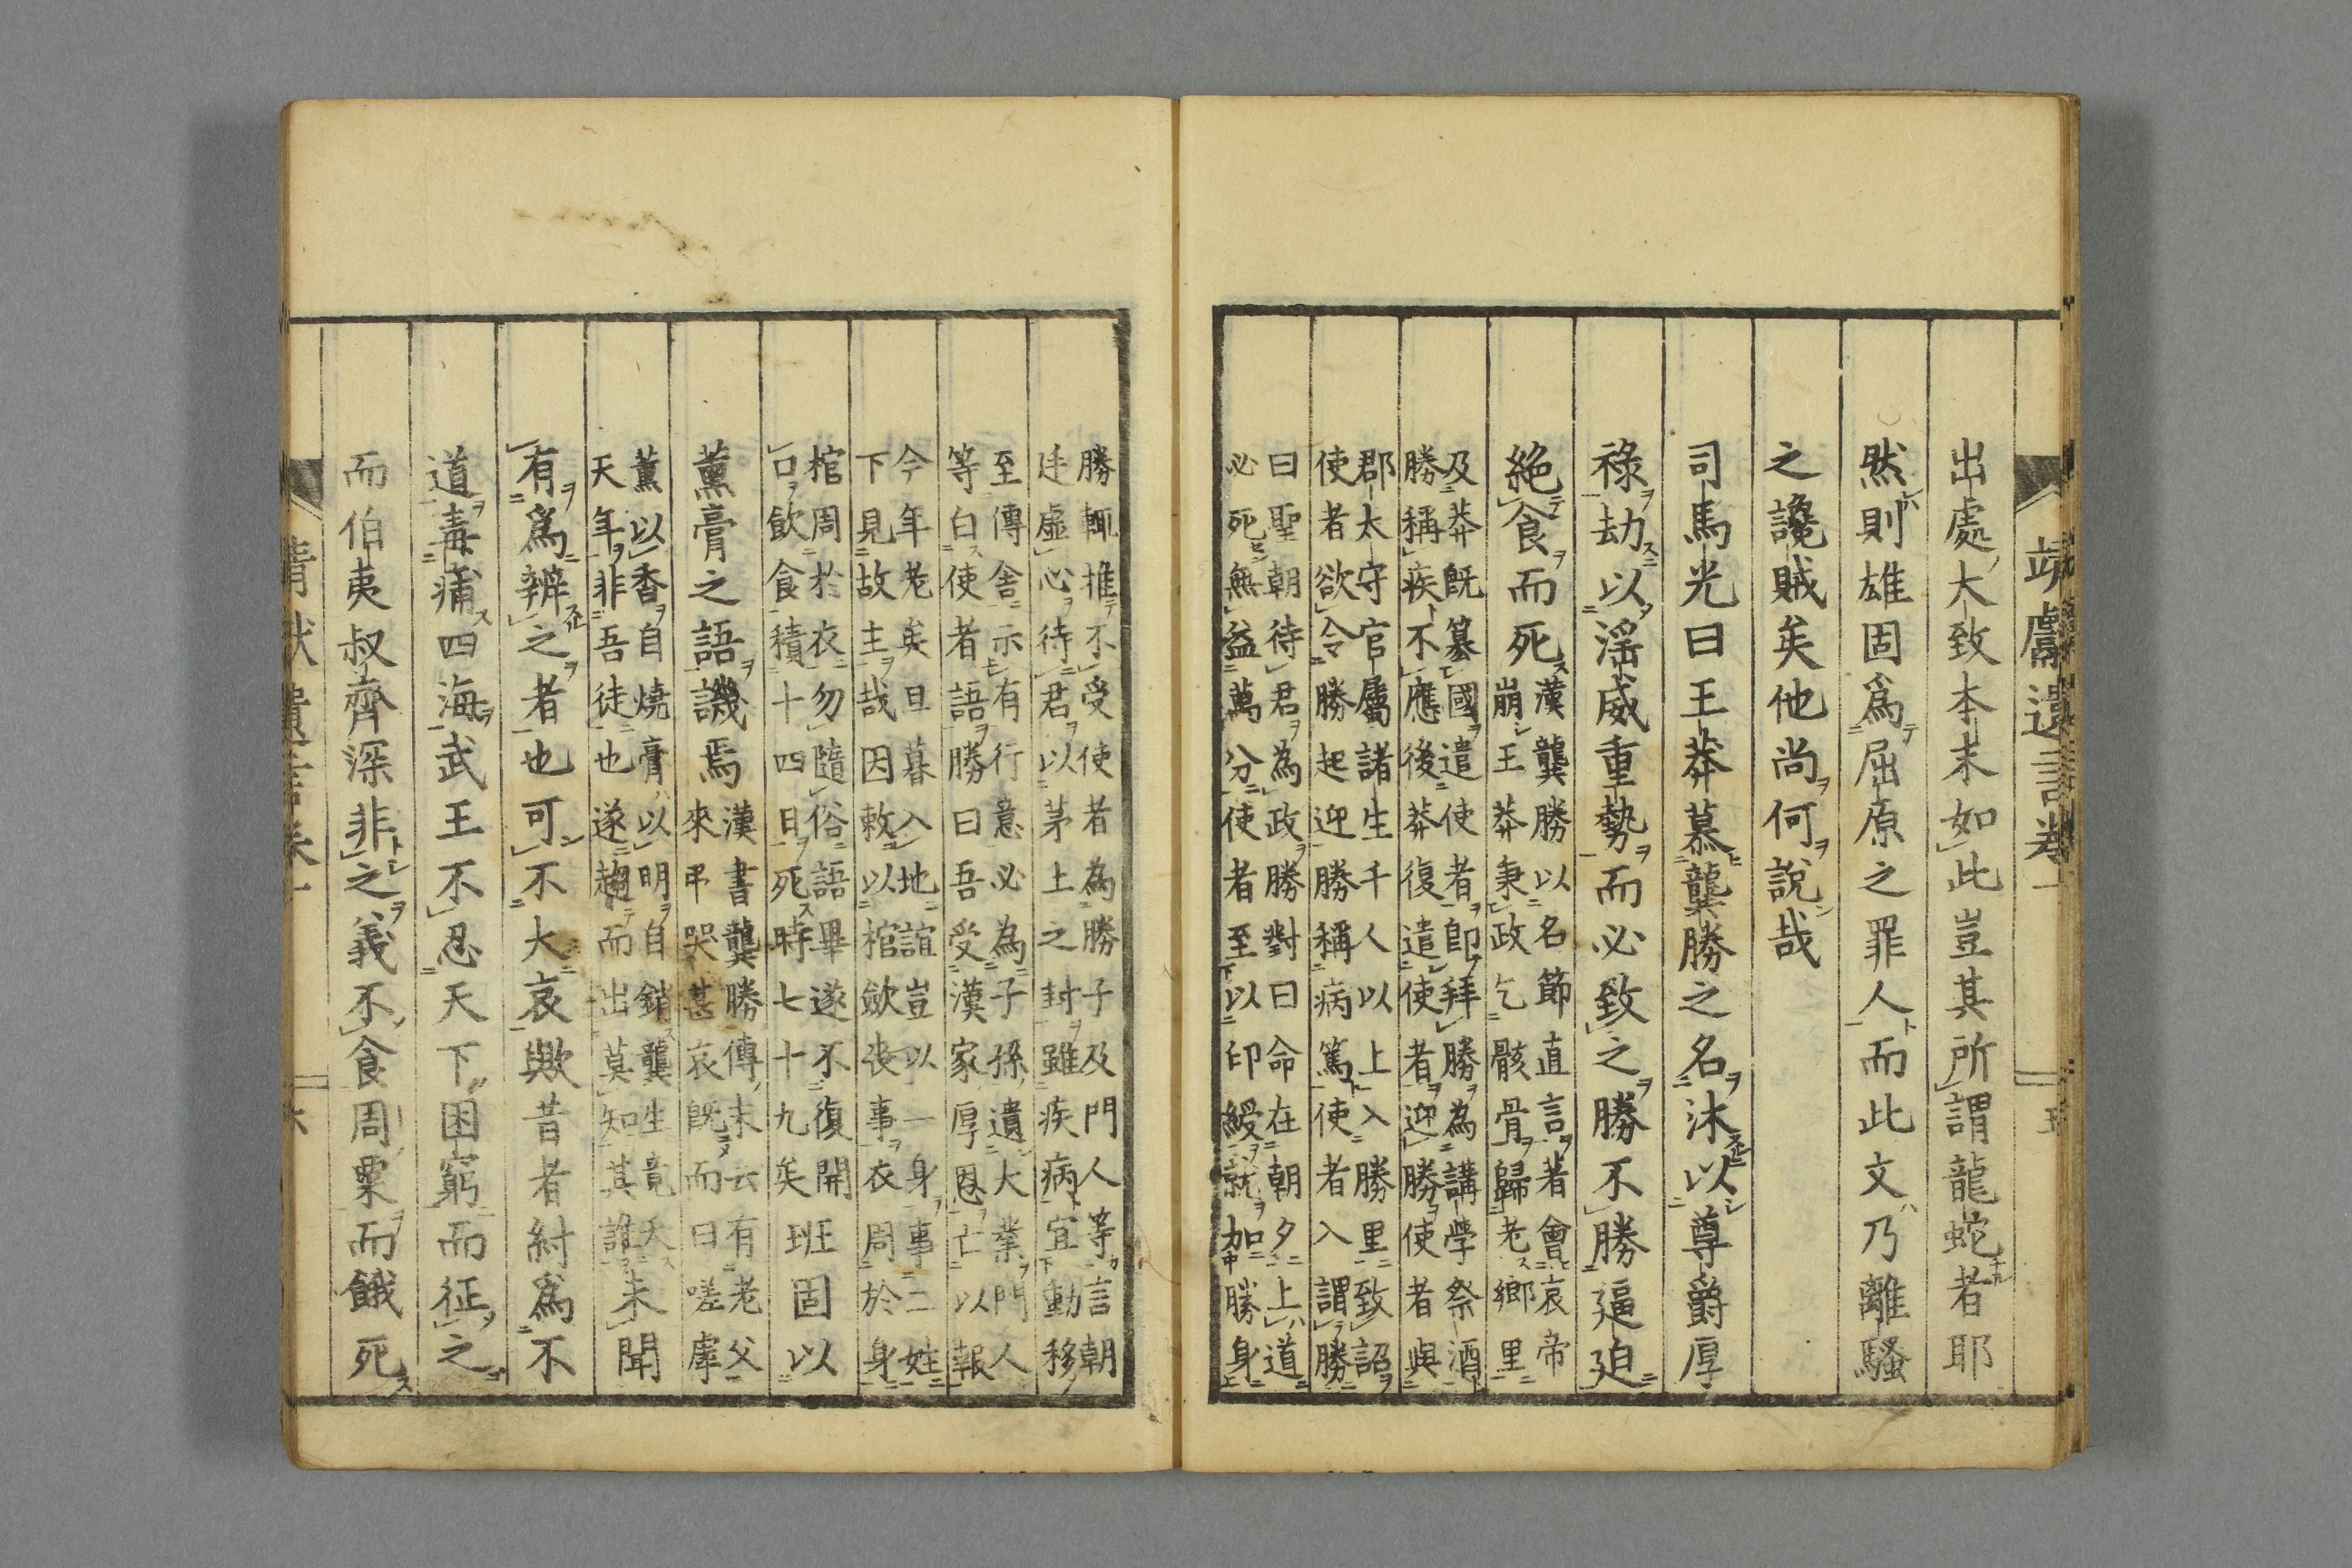 靖獻遺言卷一
出處大致本末如此豈其所謂龍蛇者耶
然則雄固爲屈原之罪人而此文乃離騷
之讒賊矣他尚何說哉
司馬光曰王莽慕龔勝之名沐以尊爵厚
祿劫以淫威重勢而必致之勝不勝逼迫
絶食而死
漢龔勝以名節直言著會哀帝
崩王莽秉政乞骸骨歸老鄉里
及莽既簒國遣使者即拜勝爲講學祭酒
勝稱疾不應後莽復遣使者迎勝使者與
郡太守官屬諸生千人以上入勝里致詔
使者欲令勝起迎勝稱病篤使者入謂勝
曰聖朝待君為政勝對曰命在朝夕上道
必死無益萬分使者至以印綬就加勝身
勝輒推不受使者為勝子及門人等言朝
廷虛心待君以茅土之封雖疾病宜動移
至傳舍示有行意必為子孫遺大業門人
等白使者語勝曰吾受漢家厚恩亡以報
今年老矣旦暮入地誼豈以一身事二姓
下見故主哉因敕以棺斂喪事衣周於身
棺周於衣勿隨俗語畢遂不復開
口飲食積十四日死時七十九矣
班固以
薰膏之語譏焉
漢書龔勝傳末云有老父
來弔哭甚哀既而曰嗟虖
薰以香自燒膏以明自銷龔生竟夭
天年非吾徒也遂趨而出莫知其誰
未聞
有爲辨之者也可不大哀歟昔者紂爲不
道毒痡四海武王不忍天下困窮而征之
而伯夷叔齊深非之義不食周粟而餓死